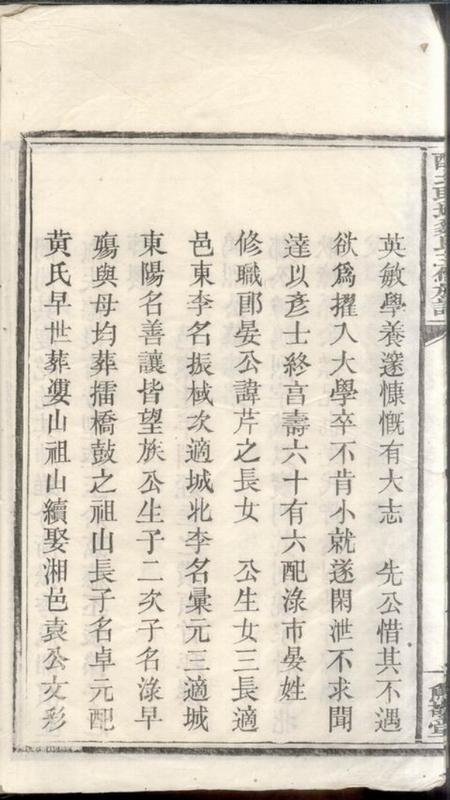 英敏學養邃慷慨有大志　先公惜其不遇
欲爲擢入大學卒不肯小就遂閑泄不求聞
達以彥士終言壽六十有六配淥市晏姓
修職郎晏公諱芹之長女　公生女三長適
邑東李名振棫次適城北李名彙元三適城
東陽名善讓皆望族公生子二次子名淥早
殤與母均葬擂橋鼓之祖山長子名卓元配
黃氏早世葬婁山祖山續娶湘邑袁公文彩